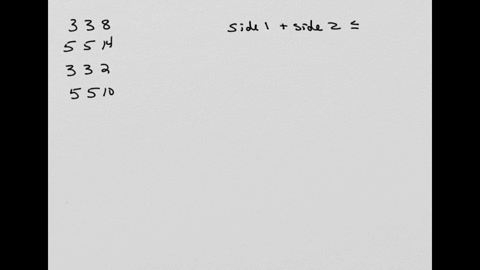 3 3 8
5 5 14
3 3 2
5 5 10
side 1 + side 2 ≤